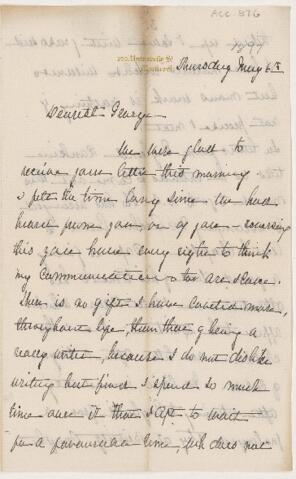 ACC. 876
1897
Thursday May 6th
Dearest George
We were glad to
receive your letter this morning
I felt the time long since we had
heard from you or of you -
this you have every right to think
my communications too are scarce.
There is no gift I have coveted more,
throughout life, than that of being a
ready writer, because I do not dislike
writing but find I spend so much
time over it that I apt to wait
for a favourable time, wh does not